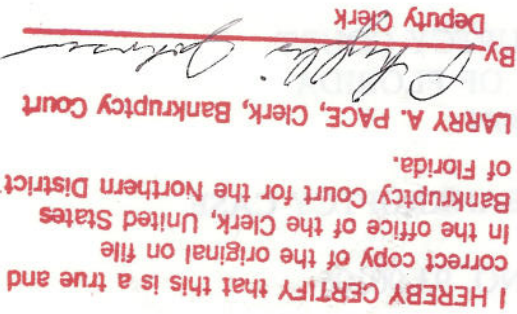 I HEREBY CERTIFY that this is a true and
correct copy of the original on file
in the office of the Clerk, United States
Bankruptcy Court for the Northern District
of Florida.
LARRY A. PACE, Clerk, Bankruptcy Court
By Phyllis Johnson
Deputy Clerk